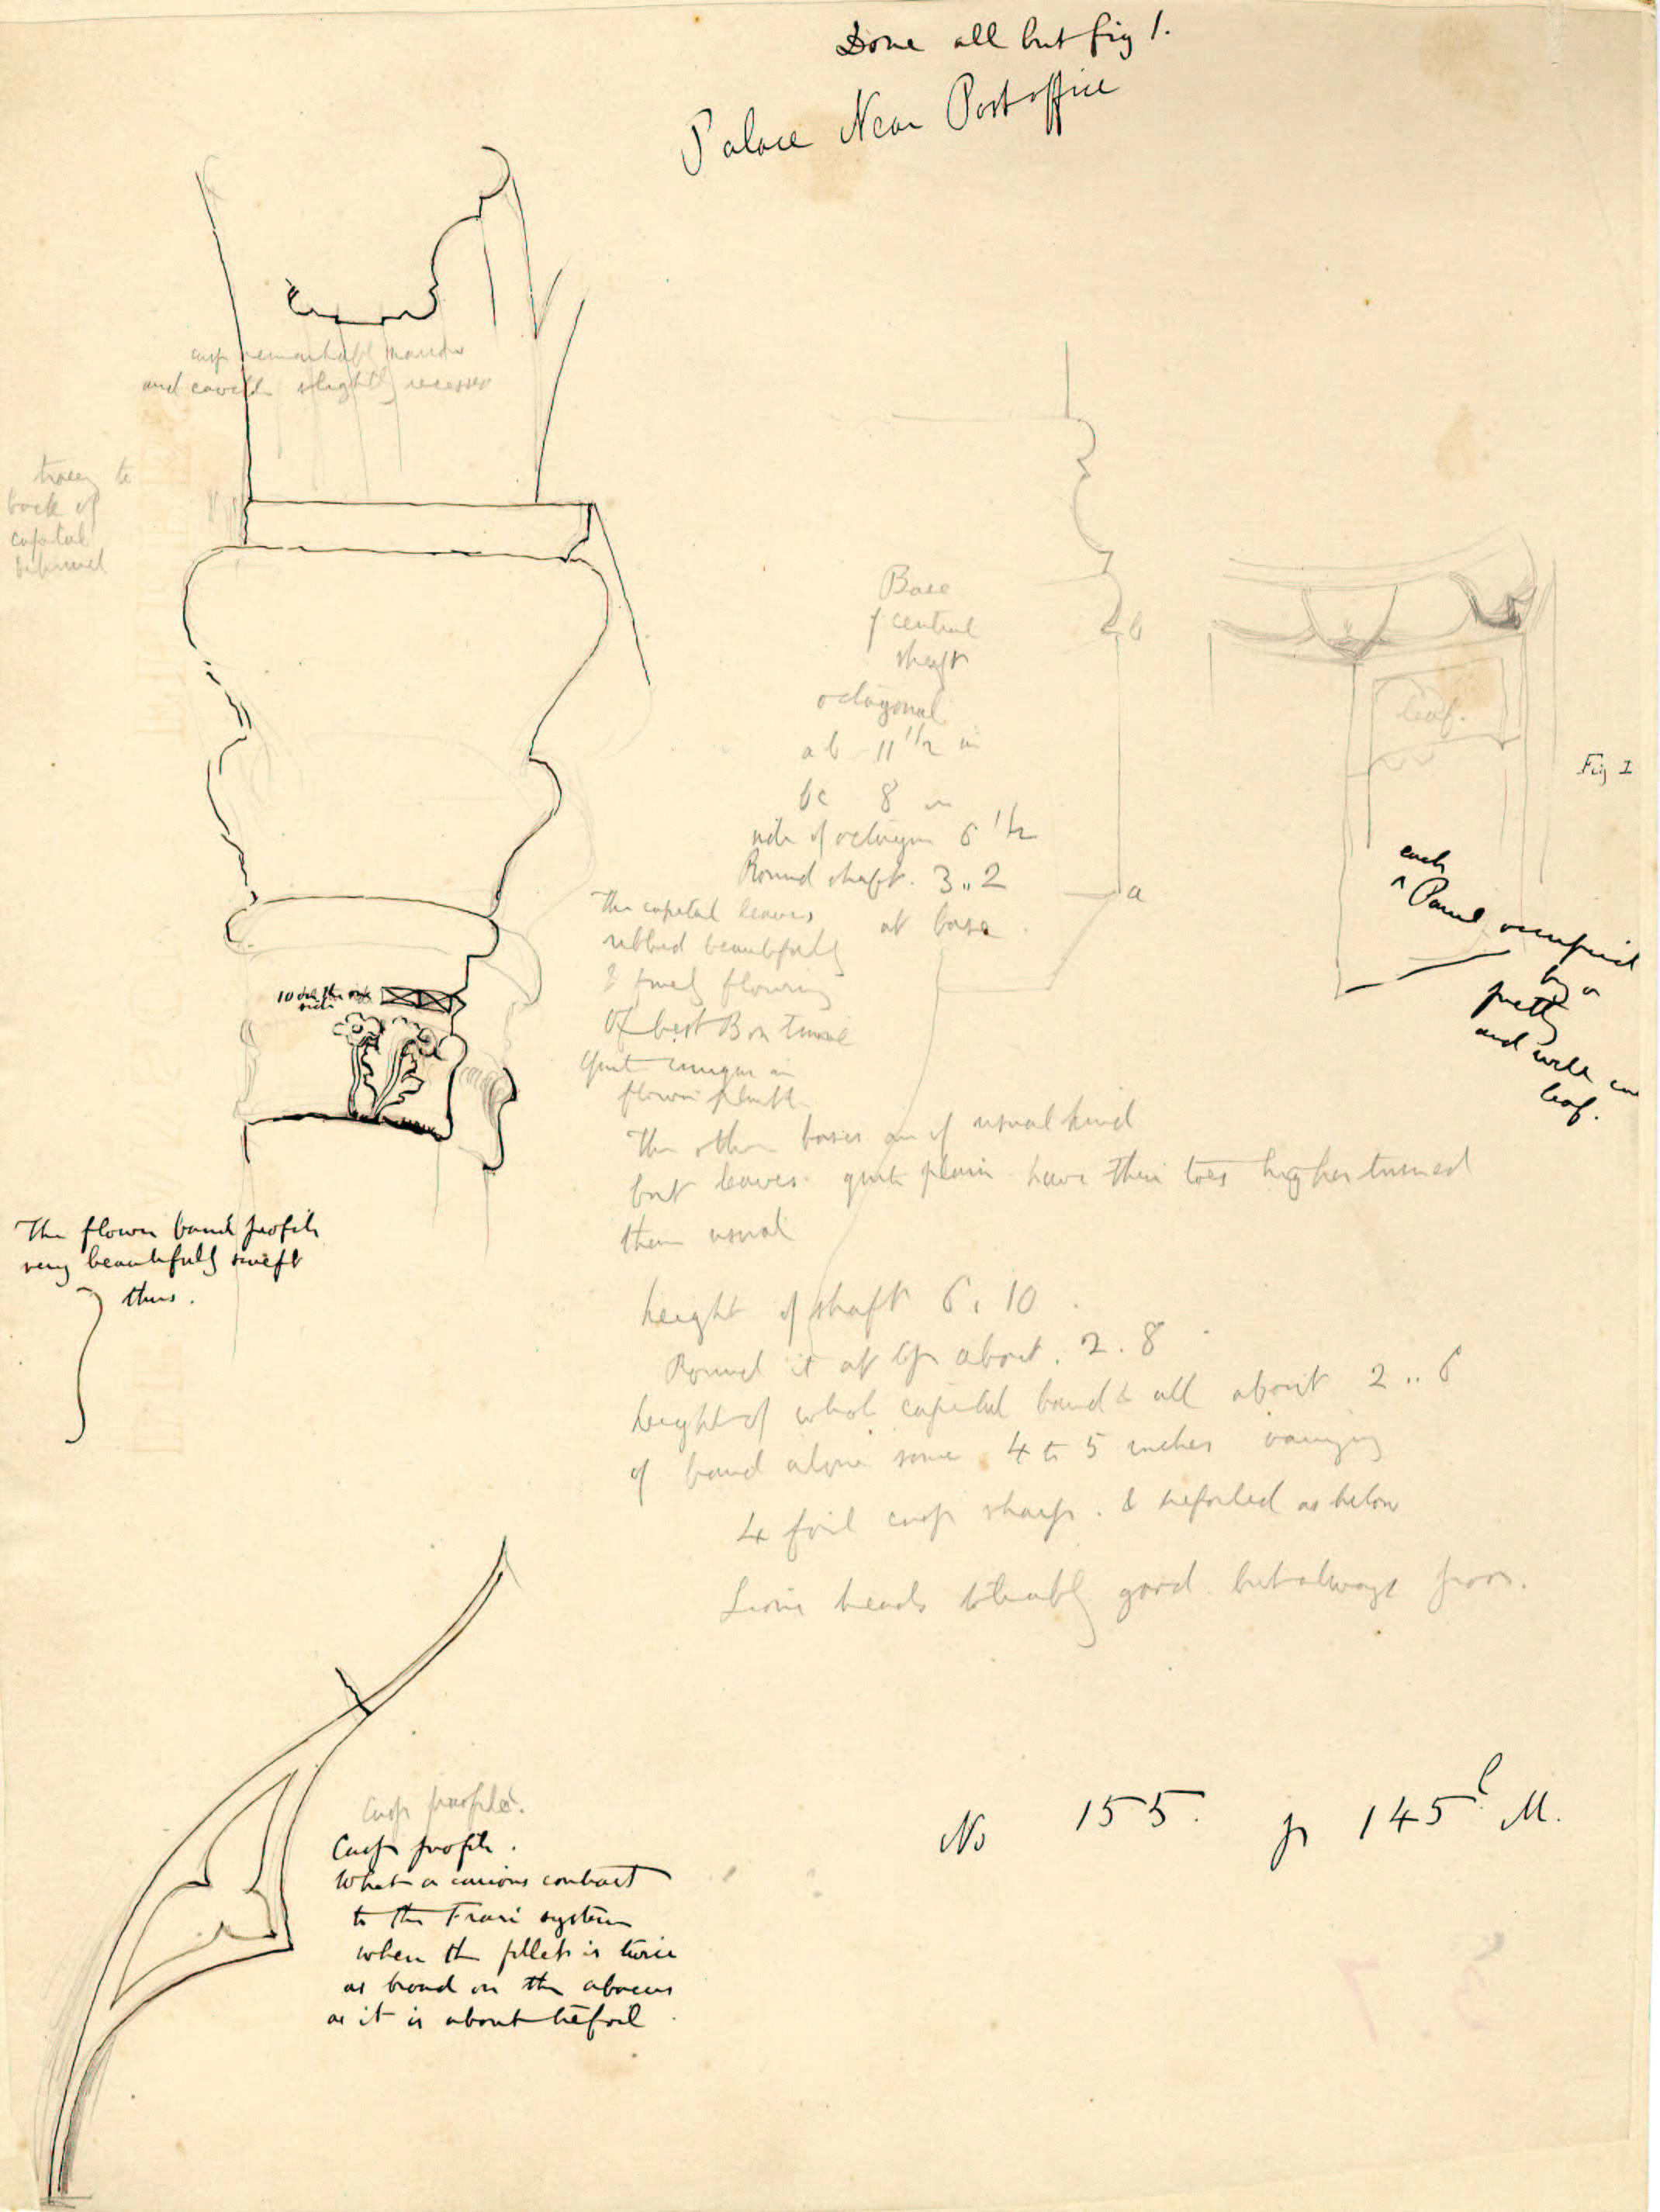 Done all but fig 1.
Palace Near Post office
cusp remarkably narrow
and cavetto slightly recesses
tracery to
back of
capital
Base
of central
shaft
octagonal
ab 11 1/2 in
bc 8 in
side of octagon 6 1/2
Round shaft. 3,,2
at base.
b
a
leaf.
Fig 1
each
^ Panel occupied
by a
pretty
and well cut
leaf.
The capital leaves
ribbed beautifully
& finely flowing
Of best Bon
Quite unique in
flower plinth
The other bases are of usual kind
but leaves quite plain have their toes higher turned
than usual
10 on the
side
The flower band profile
very beautifully swept
thus.
height of shaft 6. 10.
Round it at top about. 2. 8
height of whole capital band & all about 2.. 6
of band alone some 4 to 5 inches varying
4 foil cusp sharp. & trefoiled as below
Lions heads tolerably good. but always poor.
Cusp profile.
Cusp profile.
What a curious contrast
to the Frari system
when the fillet is twice
as broad on the abacus
as it is about trefoil.
No 155. p 145 M.